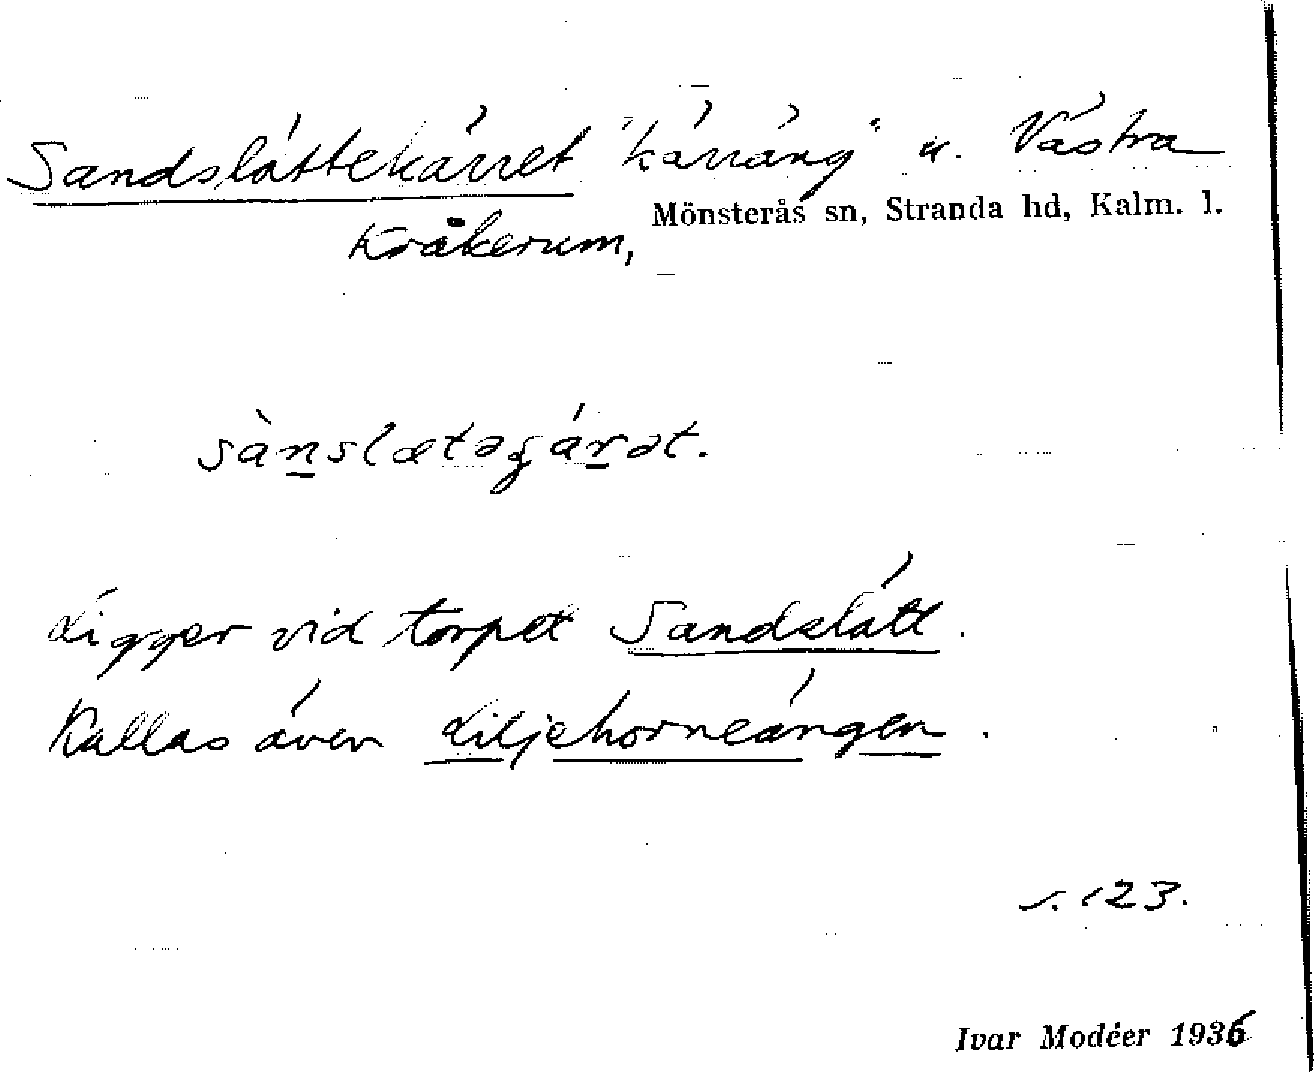 Sandslättekärret "kärräng" u. Västra
Kråkerum, Mönsterås sn, Stranda hd, Kalm. l.
sànslætəgárət.
Ligger vid torpet Sandslätt.
Kallas även Liljehorneängen.
s. 123.
Ivar Modéer 1936